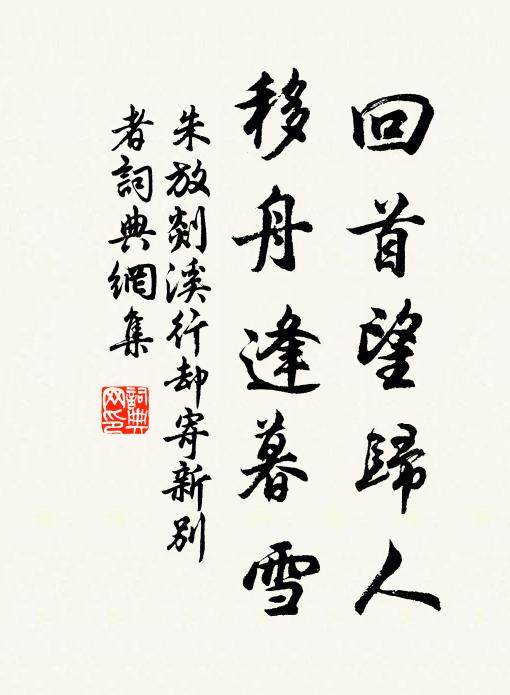 回首望歸人
移舟逢暮雪
朱放剡溪行却寄新別
者詞典網集
詞典
网印